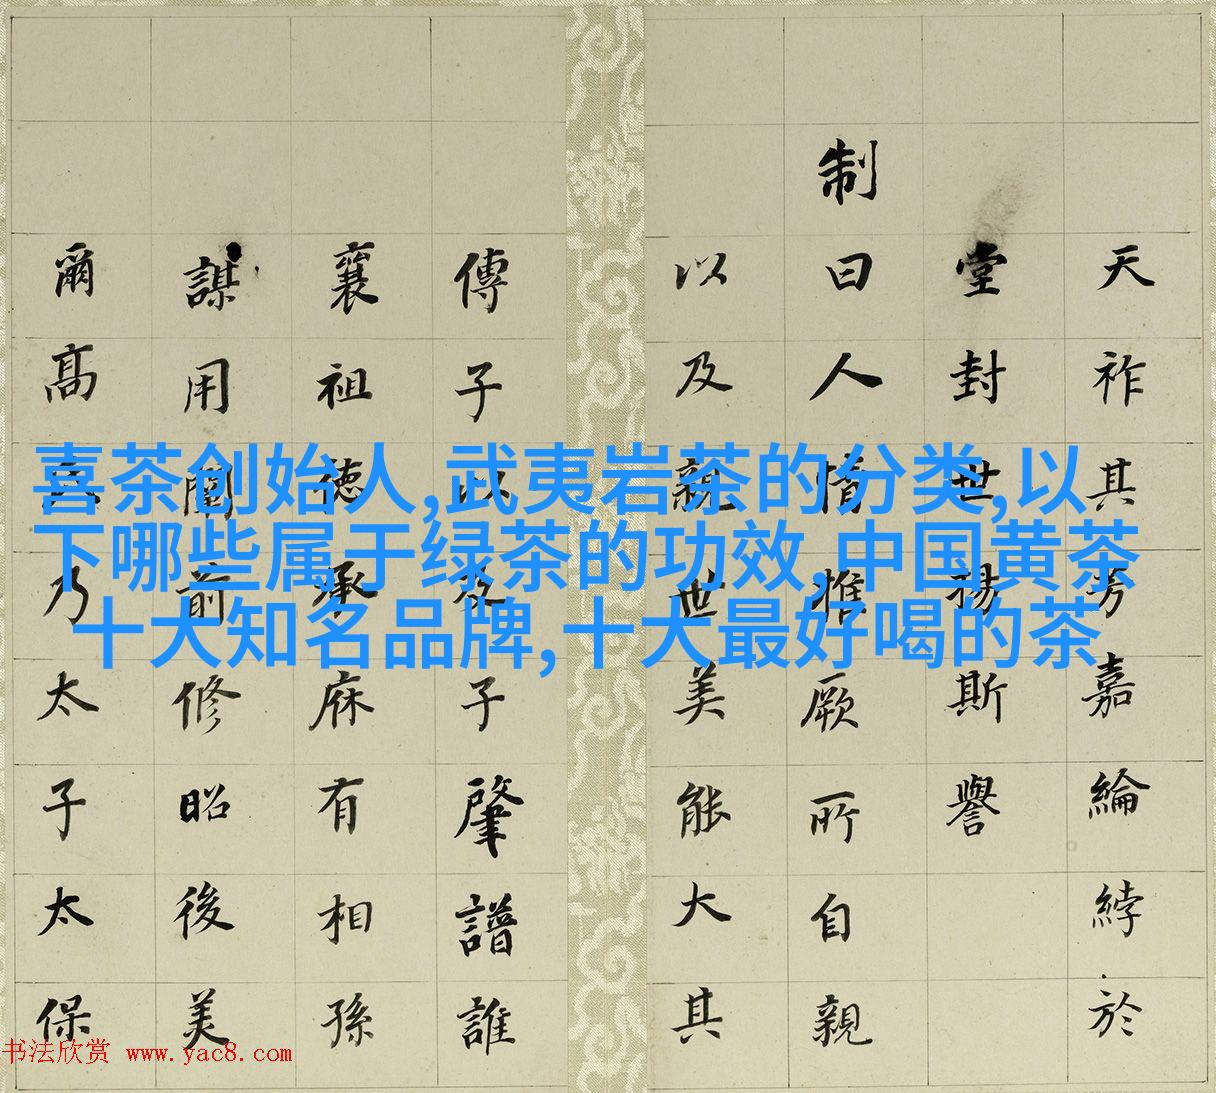 天祚其芳嘉綸綍於
堂封世揚斯譽
制曰人情惟厥所自親
以及親世美能大其
傳子以及子肇譜誰
襄祖德承庥有相孫
謀用前修昭後美
爾高乃太子太保
喜茶创始人,武夷岩茶的分类,以
下哪些属于绿茶的功效,中国黄茶
十大知名品牌,十大最好喝的茶
书法欣赏 www.yac8.com